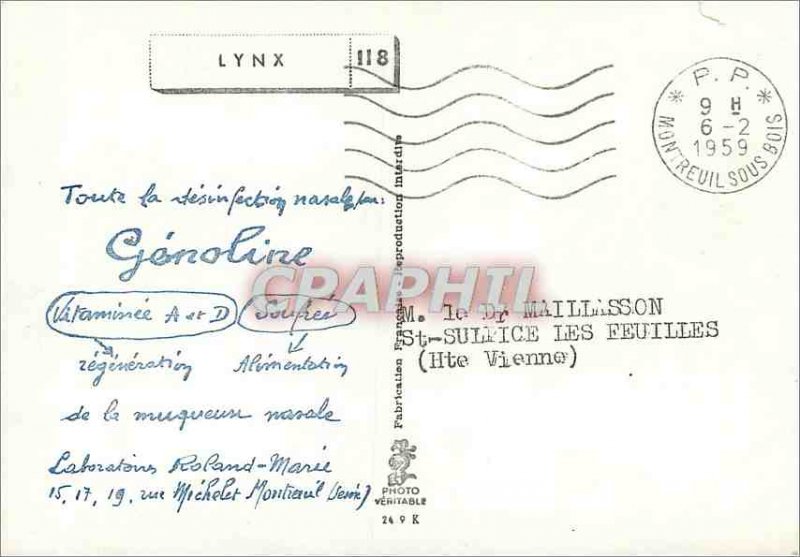 LYNX 118
* P. P. *
9 H
6-2
1959
MONTREUIL SOUS BOIS
Toute la désinfection nasale par:
Génoline
Vitaminée A et D Soufrée
régénération Alimentation
de la muqueuse nasale
Laboratoires Roland-Marie
15, 17, 19, rue Michelet Montreuil (Seine)
CPAPHIL
Fabrication Française Reproduction Interdite
M. le Dr MAILLASSON
St-SULPICE LES FEUILLES
(Hte Vienne)
PHOTO
VÉRITABLE
24 9 K